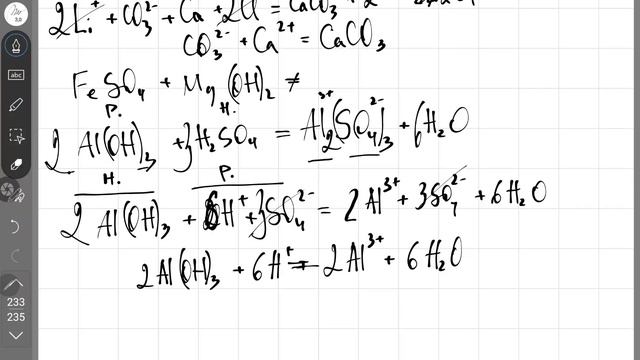 2Li⁺ + CO₃²⁻ + Ca + 2Cl = CaCO₃ + 2
CO₃²⁻ + Ca²⁺ = CaCO₃
FeSO₄ + Mg(OH)₂ ≠
Р. Н.
2Al(OH)₃ + 3H₂SO₄ = Al₂³⁺(SO₄)₃²⁻ + 6H₂O
Н. Р.
2Al(OH)₃ + 6H⁺ + 3SO₄²⁻ = 2Al³⁺ + 3SO₄²⁻ + 6H₂O
2Al(OH)₃ + 6H⁺ = 2Al³⁺ + 6H₂O
abc
233
235